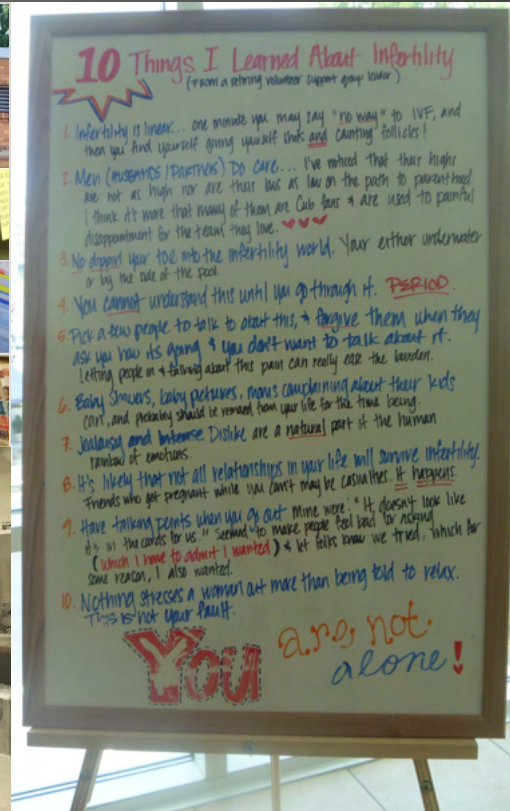 10 Things I Learned About Infertility
(From a retiring volunteer support group leader)
1. Infertility is linear... one minute you may say "no way" to IVF, and
then you find yourself giving yourself shots and counting follicles!
2. Men (Husbands/Partners) Do care... I've noticed that their highs
are not as high nor are their lows as low on the path to parenthood.
I think it's more that many of them are Cub fans & are used to painful
disappointment for the team they love.
3. No dippin' your toe into the infertility world. Your either underwater
or by the side of the pool.
4. You cannot understand this until you go through it. PERIOD.
5. Pick a few people to talk to about this, & forgive them when they
ask you how its going & you don't want to talk about it.
Letting people in & talking about this pain can really ease the burden.
6. Baby Showers, baby pictures, moms complaining about their kids
can, and probably should be removed from your life for the time being.
7. Jealousy and Intense Dislike are a natural part of the human
rainbow of emotions.
8. It's likely that not all relationships in your life will survive infertility.
Friends who get pregnant while you can't may be casualties. It happens.
9. Have talking points when you go out mine were: "It doesn't look like
it's in the cards for us." Seemed to make people feel bad for asking
(which I have to admit I wanted) & let folks know we tried, which for
some reason, I also wanted.
10. Nothing stresses a woman out more than being told to relax.
This is not your fault.
You are not
alone!